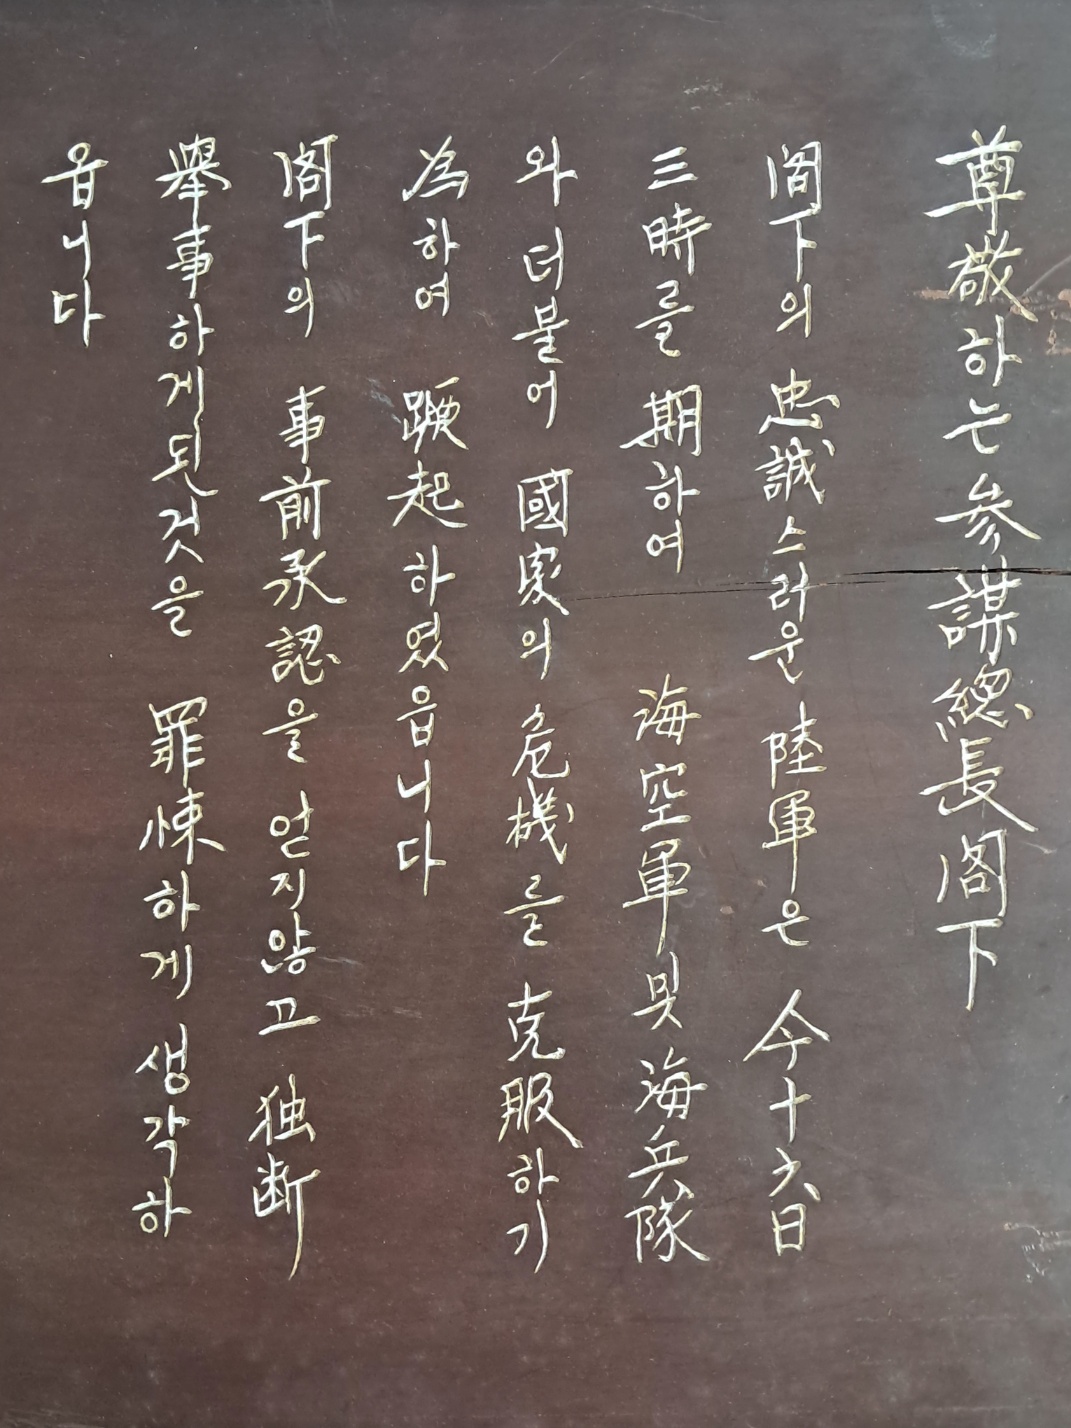 尊敬하는 参謀總長閣下
閣下의 忠誠스러운 陸軍은 今十六日
三時를 期하여 海空軍및 海兵隊
와 더불어 國家의 危機를 克服하기
爲하여 蹶起하였읍니다
閣下의 事前承認을 얻지않고 独断
擧事하게된것을 罪悚하게 생각하
옵니다